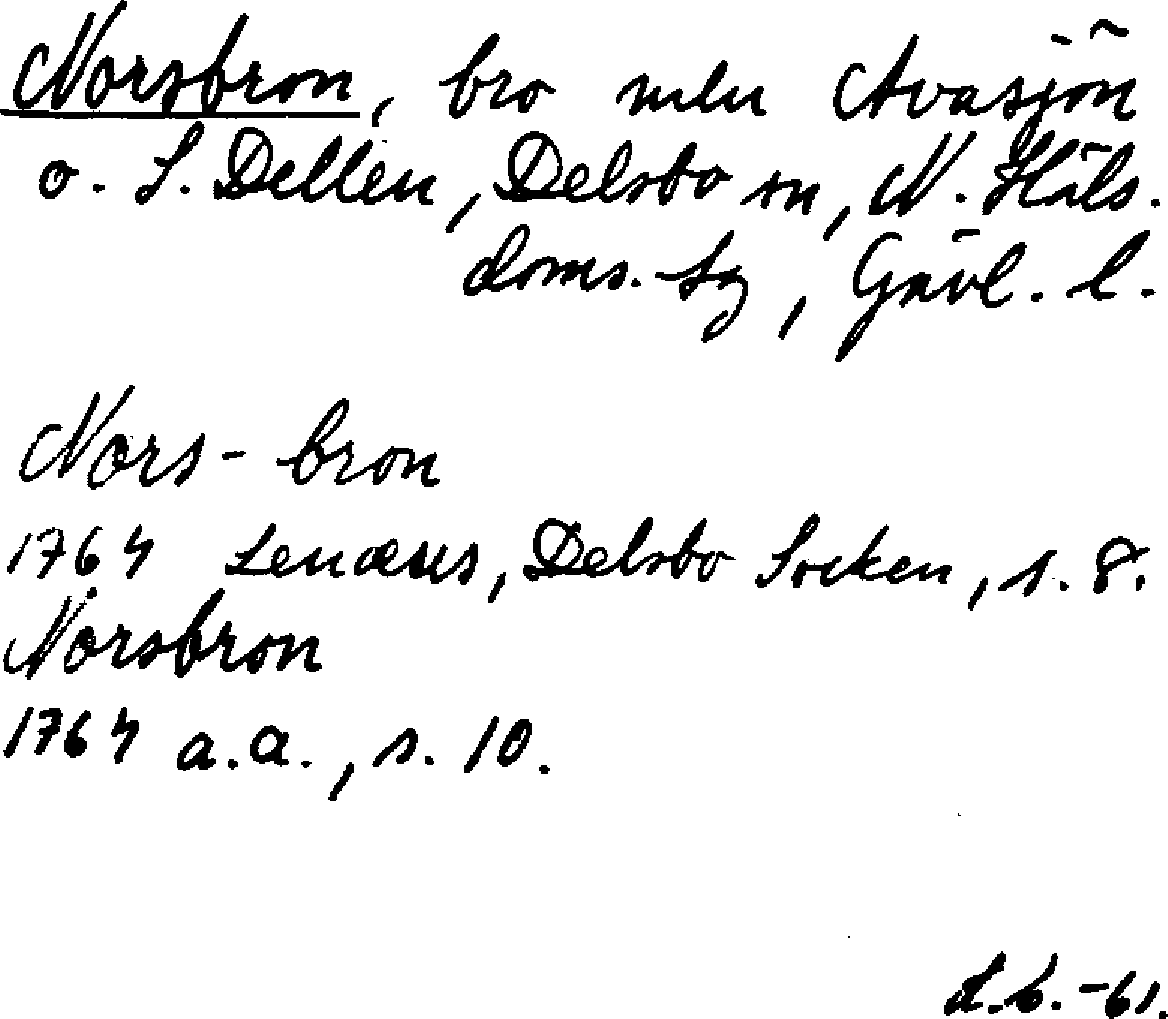 Norsbron, bro mln Avasjön
o. S. Dellen, Delsbo sn, N. Häls.
doms. sg, Gävl. l.
Nors-bron
1764 Lenæus, Delsbo Socken, s. 8.
Norsbron
1764 a.a., s. 10.
L.b.-61.